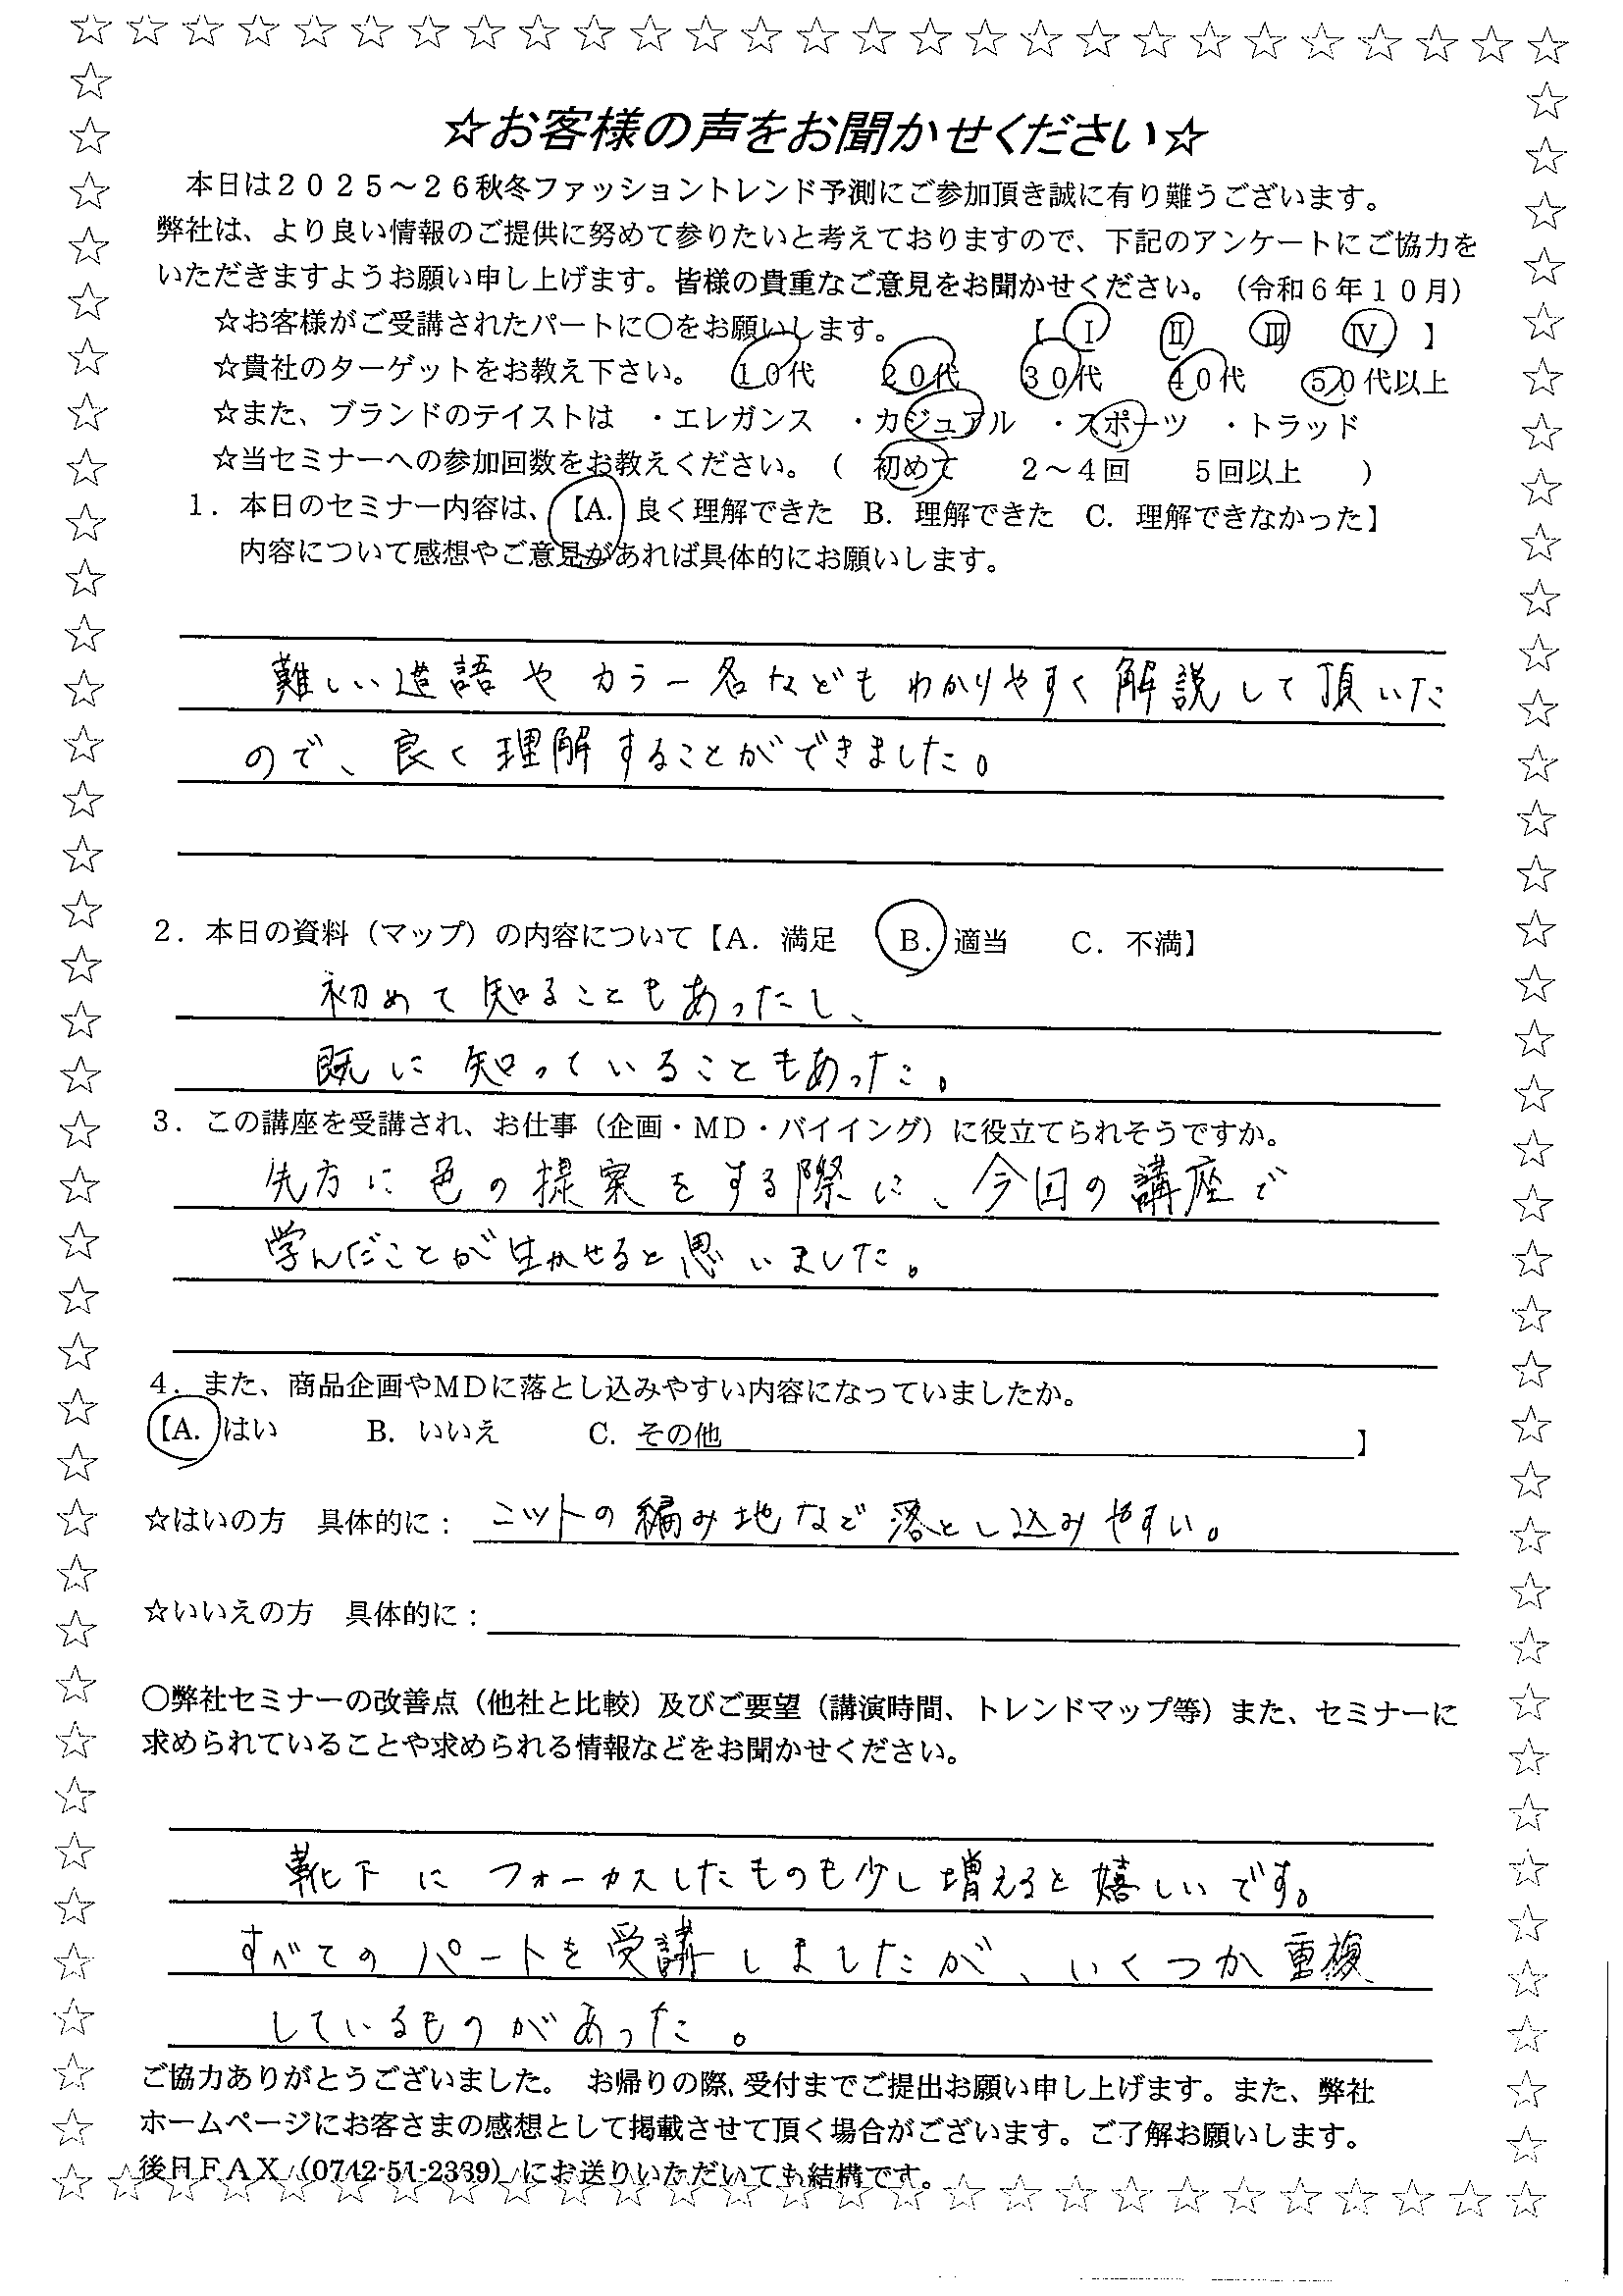 ☆お客様の声をお聞かせください☆
本日は2025～26秋冬ファッショントレンド予測にご参加頂き誠に有り難うございます。
弊社は、より良い情報のご提供に努めて参りたいと考えておりますので、下記のアンケートにご協力を
いただきますようお願い申し上げます。皆様の貴重なご意見をお聞かせください。（令和6年10月）
☆お客様がご受講されたパートに○をお願いします。 【 Ⅰ Ⅱ Ⅲ Ⅳ 】
☆貴社のターゲットをお教え下さい。 10代 20代 30代 40代 50代以上
☆また、ブランドのテイストは ・エレガンス ・カジュアル ・スポーツ ・トラッド
☆当セミナーへの参加回数をお教えください。（ 初めて 2～4回 5回以上 ）
1．本日のセミナー内容は、【A. 良く理解できた B. 理解できた C. 理解できなかった】
内容について感想やご意見があれば具体的にお願いします。
難しい造語やカラー名などもわかりやすく解説して頂いた
ので、良く理解することができました。
2．本日の資料（マップ）の内容について【A. 満足 B. 適当 C. 不満】
初めて知ることもあったし、
既に知っていることもあった。
3．この講座を受講され、お仕事（企画・MD・バイイング）に役立てられそうですか。
先方に色の提案をする際に、今回の講座で
学んだことが生かせると思いました。
4．また、商品企画やMDに落とし込みやすい内容になっていましたか。
【A. はい B. いいえ C. その他 】
☆はいの方 具体的に： ニットの編み地など落とし込みやすい。
☆いいえの方 具体的に：
○弊社セミナーの改善点（他社と比較）及びご要望（講演時間、トレンドマップ等）また、セミナーに
求められていることや求められる情報などをお聞かせください。
靴下にフォーカスしたものも少し増えると嬉しいです。
すべてのパートを受講しましたが、いくつか重複
しているものがあった。
ご協力ありがとうございました。 お帰りの際、受付までご提出お願い申し上げます。また、弊社
ホームページにお客さまの感想として掲載させて頂く場合がございます。ご了解お願いします。
後日FAX（0742-51-2339）にお送りいただいても結構です。